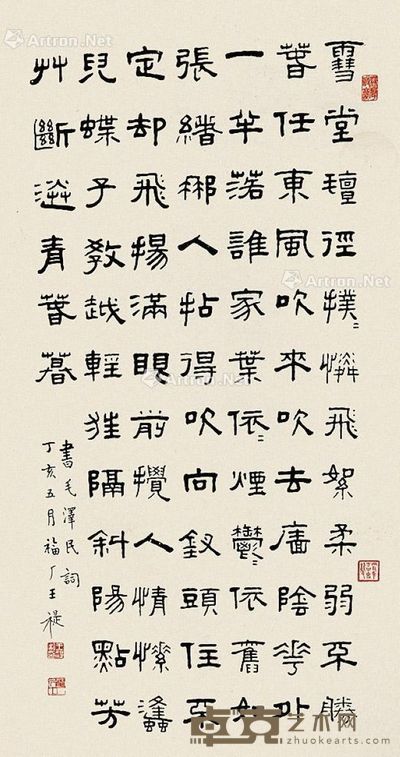 雪堂璮徑撲〻憐飛絮柔弱不勝
春任東風吹來吹去牆陰花外
一半落誰家葉依〻煙鬱〻依舊如
張緒那人拈得吹向釵頭住不
定却飛揚滿眼前攪人情愫蠭
兒蝶子教越輕狂隔斜陽點芳
艸斷送青春暮
書毛澤民詞
丁亥五月福厂王禔
Artron.Net
Artron.Net
Artron.Net
Artron.Net
卓克艺术网
zhuokearts.com